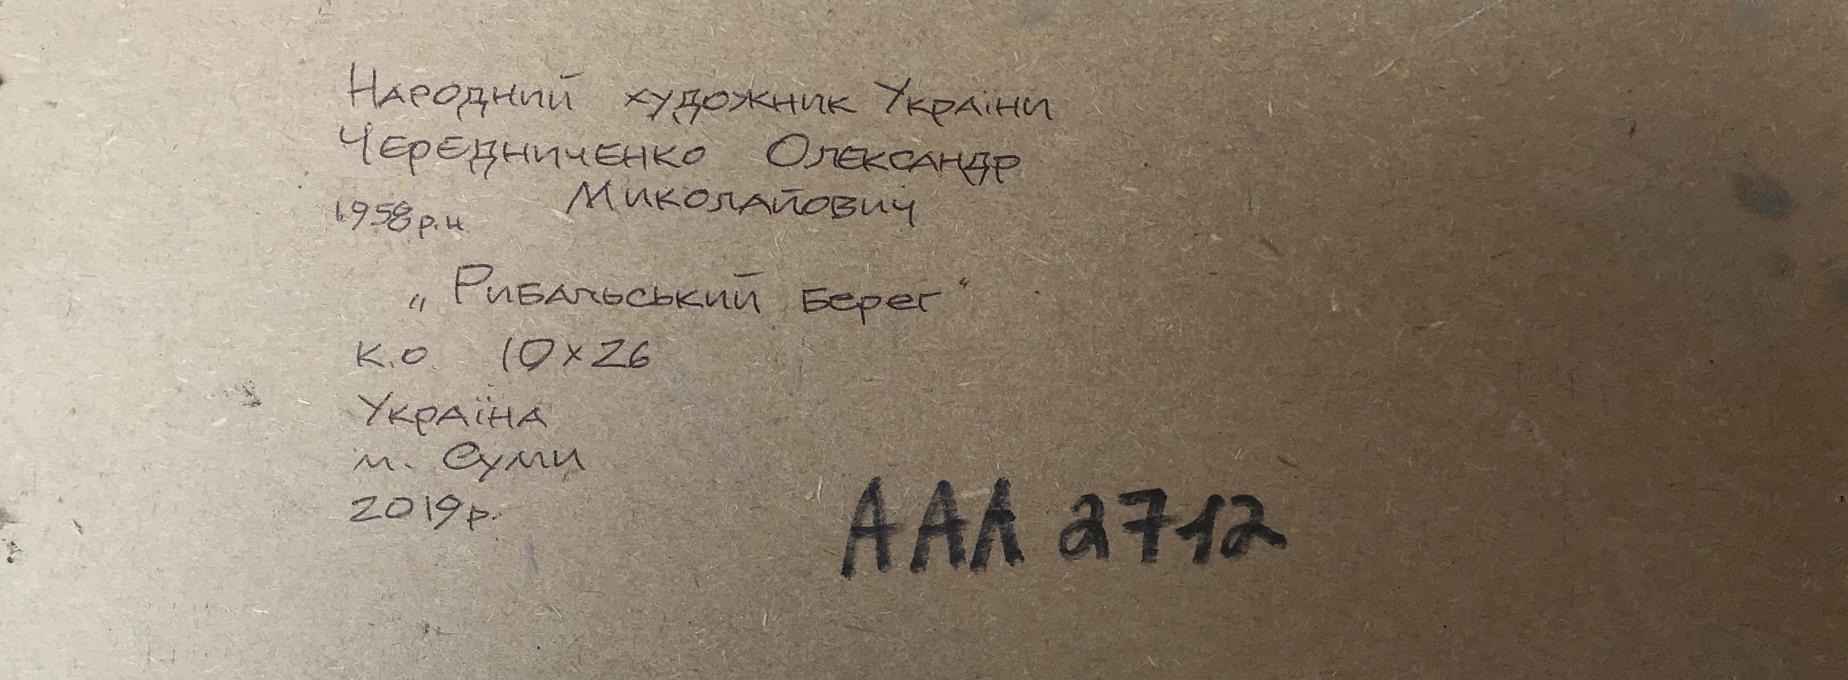 Народний художник України
Чередниченко Олександр
Миколайович
1958 р.н.
„Рибальський берег“
к.о 10х26
Україна
м. Суми
2019р.
ААА 2712